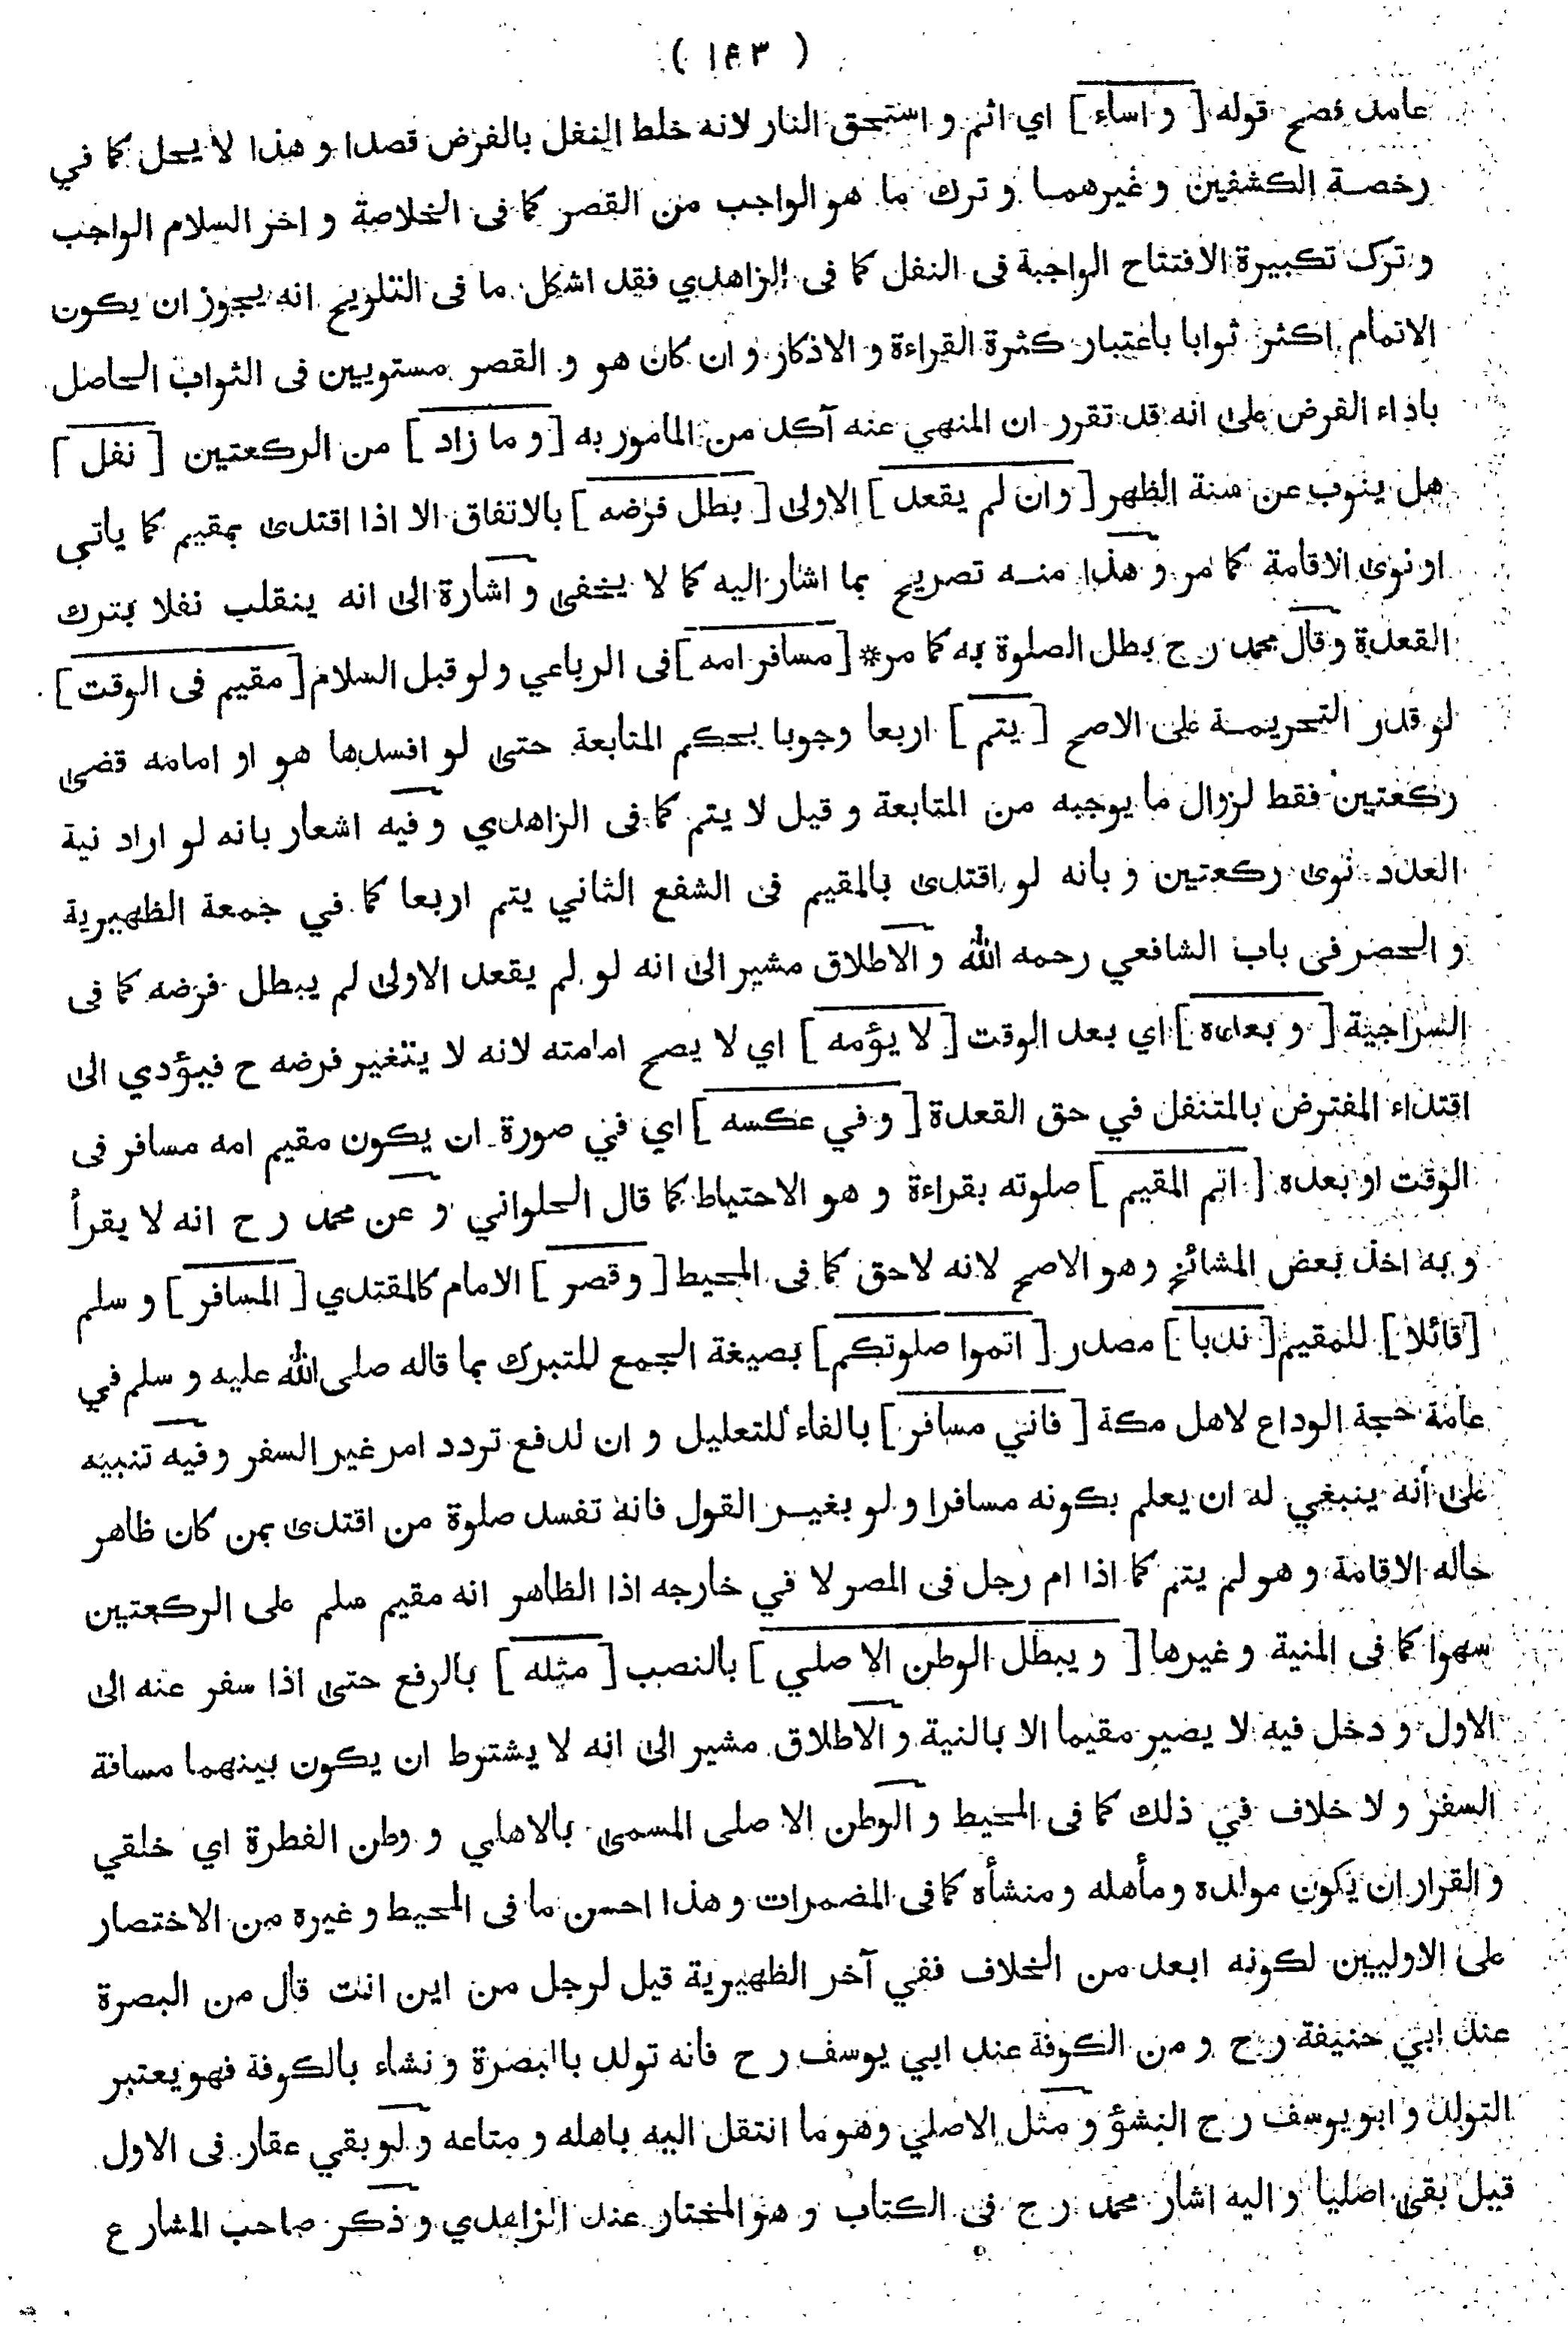 ( ١٤٣ )
عامد فصح قوله [ و اساء ] اي اثم و استحق النار لانه خلط النفل بالفرض قصدا و هذا لا يحل كما في
رخصة الكشفين و غيرهما و ترك ما هو الواجب من القصر كما فى الخلاصة و اخر السلام الواجب
و ترك تكبيرة الافتتاح الواجبة فى النفل كما فى الزاهدي فقد اشكل ما فى التلويح انه يجوز ان يكون
الاتمام اكثر ثوابا باعتبار كثرة القراءة و الاذكار و ان كان هو و القصر مستويين فى الثواب الحاصل
باداء الفرض على انه قد تقرر ان المنهي عنه آكد من المامور به [ و ما زاد ] من الركعتين [ نفل ]
هل ينوب عن سنة الظهر [ و ان لم يقعد ] الاولى [ بطل فرضه ] بالاتفاق الا اذا اقتدى بمقيم كما يأتي
او نوى الاقامة كما مر و هذا منه تصريح بما اشار اليه كما لا يخفى و اشارة الى انه ينقلب نفلا بترك
القعدة و قال محمد ر ح بطل الصلوة به كما مر * [ مسافر امه ] فى الرباعي و لو قبل السلام [ مقيم فى الوقت ]
لو قدر التحريمة على الاصح [ يتم ] اربعا وجوبا بحكم المتابعة حتى لو افسدها هو او امامه قضى
ركعتين فقط لزوال ما يوجبه من المتابعة و قيل لا يتم كما فى الزاهدي و فيه اشعار بانه لو اراد نية
العدد نوى ركعتين و بانه لو اقتدى بالمقيم فى الشفع الثاني يتم اربعا كما في جمعة الظهيرية
و الحصر فى باب الشافعي رحمه الله و الاطلاق مشير الى انه لو لم يقعد الاولى لم يبطل فرضه كما فى
السراجية [ و بعده ] اي بعد الوقت [ لا يؤمه ] اي لا يصح امامته لانه لا يتغير فرضه ح فيؤدي الى
اقتداء المفترض بالمتنفل في حق القعدة [ و في عكسه ] اي في صورة ان يكون مقيم امه مسافر فى
الوقت او بعده [ اتم المقيم ] صلوته بقراءة و هو الاحتياط كما قال الحلواني و عن محمد ر ح انه لا يقرأ
و به اخذ بعض المشائخ و هو الاصح لانه لاحق كما فى المحيط [ و قصر ] الامام كالمقتدي [ المسافر ] و سلم
[ قائلا ] للمقيم [ ندبا ] مصدر [ اتموا صلوتكم ] بصيغة الجمع للتبرك بما قاله صلى الله عليه و سلم في
عامة حجة الوداع لاهل مكة [ فاني مسافر ] بالفاء للتعليل و ان لدفع تردد امر غير السفر و فيه تنبيه
على أنه ينبغي له ان يعلم بكونه مسافرا و لو بغير القول فانه تفسد صلوة من اقتدى بمن كان ظاهر
حاله الاقامة و هو لم يتم كما اذا ام رجل فى المصر لا في خارجه اذا الظاهر انه مقيم سلم على الركعتين
سهوا كما فى المنية و غيرها [ و يبطل الوطن الاصلي ] بالنصب [ مثله ] بالرفع حتى اذا سفر عنه الى
الاول و دخل فيه لا يصير مقيما الا بالنية و الاطلاق مشير الى انه لا يشترط ان يكون بينهما مسافة
السفر و لا خلاف في ذلك كما فى المحيط و الوطن الاصلى المسمى بالاهلي و وطن الفطرة اي خلقي
و القرار ان يكون مولده و مأهله و منشأه كما فى المضمرات و هذا احسن ما فى المحيط و غيره من الاختصار
على الاوليين لكونه ابعد من الخلاف ففي آخر الظهيرية قيل لرجل من اين انت قال من البصرة
عند ابي حنيفة ر ح و من الكوفة عند ابي يوسف ر ح فانه تولد بالبصرة و نشاء بالكوفة فهو يعتبر
التولد و ابو يوسف ر ح النشؤ و مثل الاصلي و هو ما انتقل اليه باهله و متاعه و لو بقي عقار فى الاول
قيل بقى اصليا و اليه اشار محمد ر ح فى الكتاب و هو المختار عند الزاهدي و ذكر صاحب المشارع